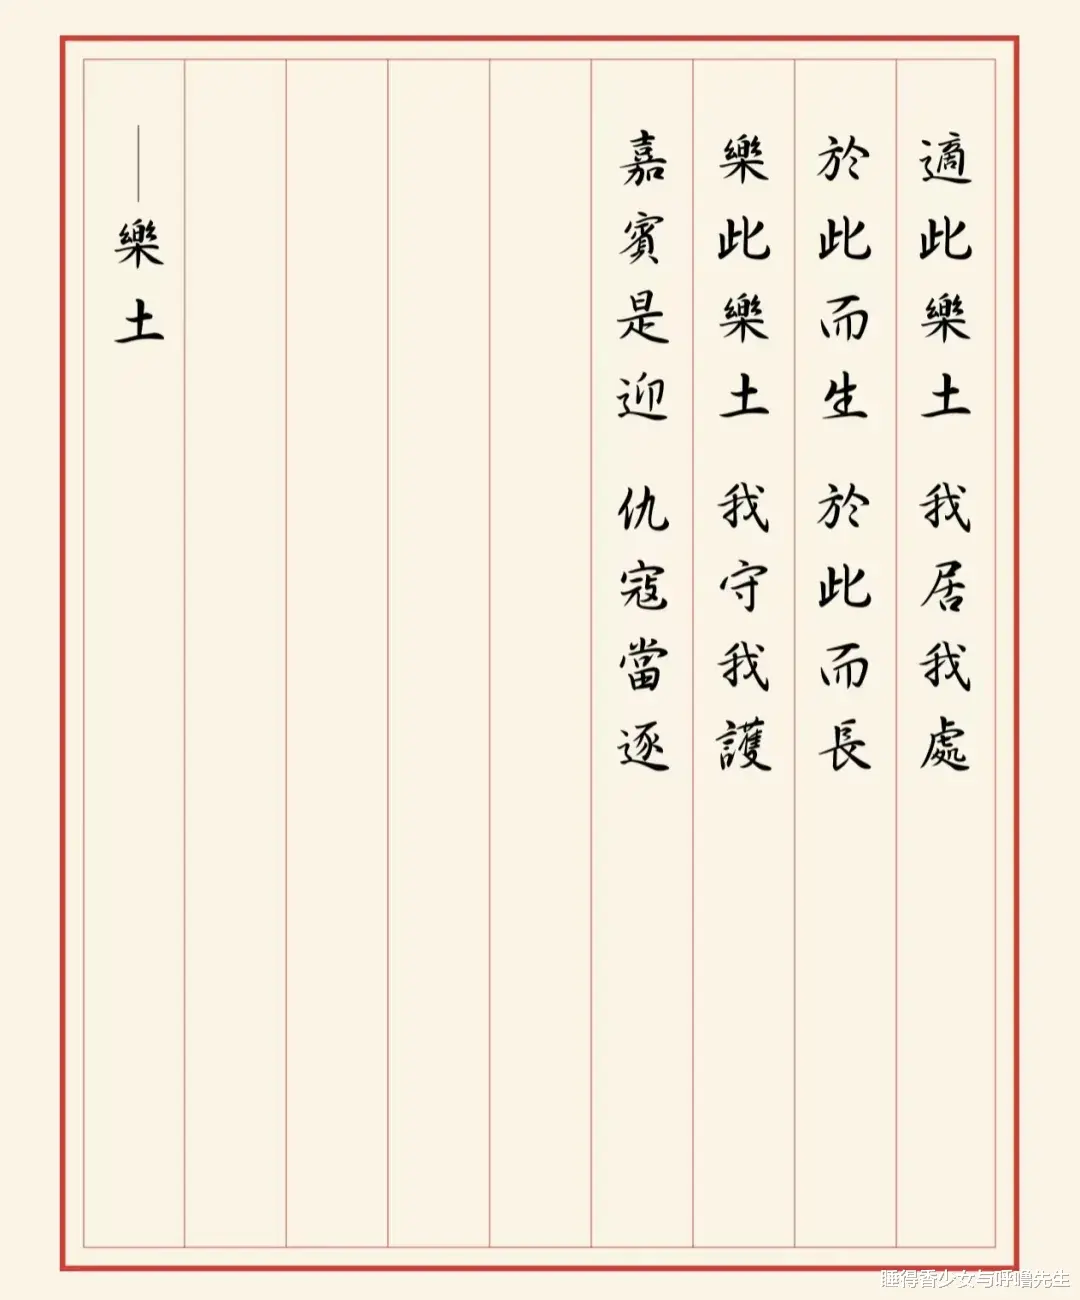 適此樂土 我居我處
於此而生 於此而長
樂此樂土 我守我護
嘉賓是迎 仇寇當逐
——樂土
睡得香少女与呼噜先生